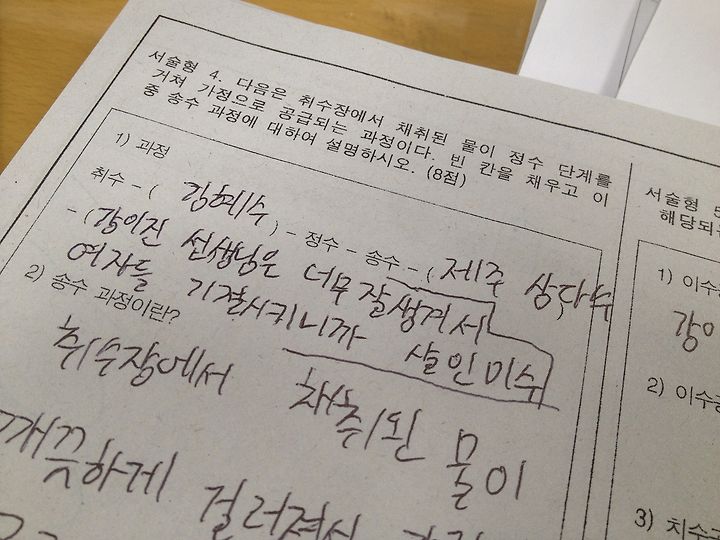 서술형 4. 다음은 취수장에서 채취된 물이 정수 단계를
거쳐 가정으로 공급되는 과정이다. 빈 칸을 채우고 이
중 송수 과정에 대하여 설명하시오. (8점)
1) 과정
취수 - ( 김혜수 ) - 정수 - 송수 - ( 제주 삼다수
- ( 강이진 선생님은 너무 잘생겨서
여자들 기절시키니까 살인미수
2) 송수 과정이란?
취수장에서 채취된 물이
깨끗하게 걸러져서
서술형
해당되
1) 이수
강이
2) 이수
3) 치수